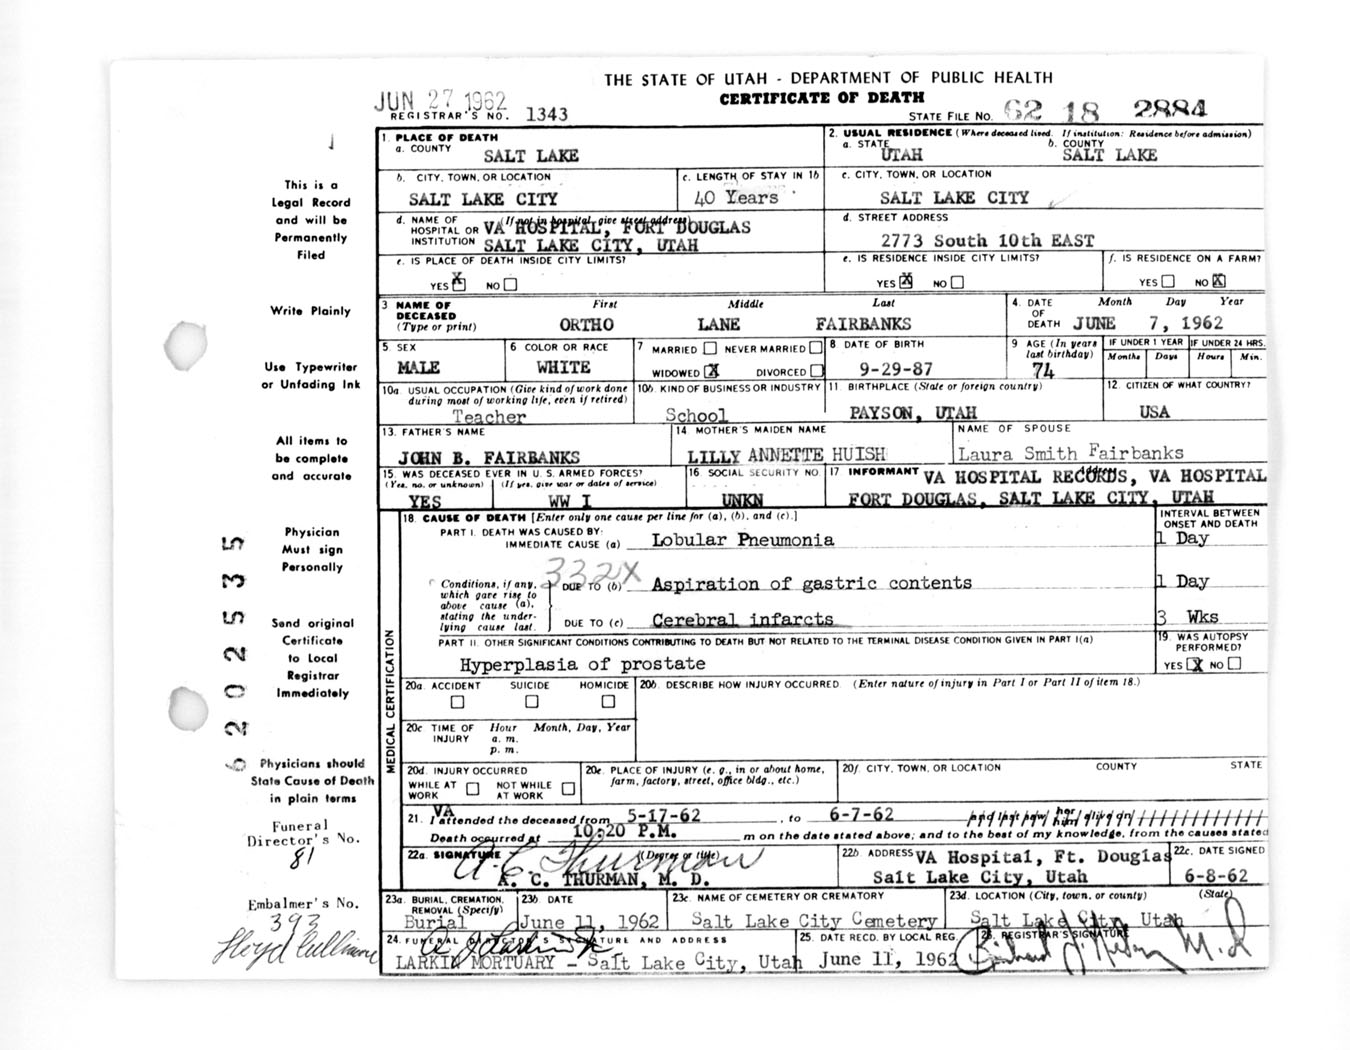 THE STATE OF UTAH - DEPARTMENT OF PUBLIC HEALTH
CERTIFICATE OF DEATH
JUN 27 1962
REGISTRAR'S NO. 1343
STATE FILE NO. 62 18 2884
This is a
Legal Record
and will be
Permanently
Filed
Write Plainly
Use Typewriter
or Unfading Ink
All items to
be complete
and accurate
Physician
Must sign
Personally
Send original
Certificate
to Local
Registrar
Immediately
Physicians should
State Cause of Death
in plain terms
Funeral
Director's No.
81
Embalmer's No.
393
Lloyd Cullimore
6202535
1. PLACE OF DEATH
a. COUNTY SALT LAKE
2. USUAL RESIDENCE (Where deceased lived. If institution: Residence before admission)
a. STATE UTAH b. COUNTY SALT LAKE
b. CITY, TOWN, OR LOCATION SALT LAKE CITY
c. LENGTH OF STAY IN 1b 40 Years
c. CITY, TOWN, OR LOCATION SALT LAKE CITY
d. NAME OF HOSPITAL OR INSTITUTION (If not in hospital, give street address) VA HOSPITAL, FORT DOUGLAS
SALT LAKE CITY, UTAH
d. STREET ADDRESS 2773 South 10th EAST
e. IS PLACE OF DEATH INSIDE CITY LIMITS?
YES X NO
e. IS RESIDENCE INSIDE CITY LIMITS?
YES X NO
f. IS RESIDENCE ON A FARM?
YES NO X
3 NAME OF DECEASED (Type or print) First Middle Last
ORTHO LANE FAIRBANKS
4. DATE OF DEATH Month Day Year
JUNE 7, 1962
5. SEX MALE
6 COLOR OR RACE WHITE
7 MARRIED NEVER MARRIED
WIDOWED X DIVORCED
8 DATE OF BIRTH 9-29-87
9 AGE (In years last birthday) 74
IF UNDER 1 YEAR Months Days
IF UNDER 24 HRS. Hours Min.
10a. USUAL OCCUPATION (Give kind of work done during most of working life, even if retired) Teacher
10b. KIND OF BUSINESS OR INDUSTRY School
11. BIRTHPLACE (State or foreign country) PAYSON, UTAH
12. CITIZEN OF WHAT COUNTRY? USA
13. FATHER'S NAME JOHN B. FAIRBANKS
14 MOTHER'S MAIDEN NAME LILLY ANNETTE HUISH
NAME OF SPOUSE Laura Smith Fairbanks
15. WAS DECEASED EVER IN U. S. ARMED FORCES?
(Yes, no, or unknown) (If yes, give war or dates of service)
YES WW I
16 SOCIAL SECURITY NO. UNKN
17 INFORMANT Address VA HOSPITAL RECORDS, VA HOSPITAL
FORT DOUGLAS, SALT LAKE CITY, UTAH
MEDICAL CERTIFICATION
18. CAUSE OF DEATH [Enter only one cause per line for (a), (b), and (c).]
INTERVAL BETWEEN ONSET AND DEATH
PART I. DEATH WAS CAUSED BY:
IMMEDIATE CAUSE (a) Lobular Pneumonia 1 Day
332X
Conditions, if any, which gave rise to above cause (a), stating the underlying cause last.
DUE TO (b) Aspiration of gastric contents 1 Day
DUE TO (c) Cerebral infarcts 3 Wks
PART II. OTHER SIGNIFICANT CONDITIONS CONTRIBUTING TO DEATH BUT NOT RELATED TO THE TERMINAL DISEASE CONDITION GIVEN IN PART I(a)
Hyperplasia of prostate
19. WAS AUTOPSY PERFORMED?
YES X NO
20a. ACCIDENT SUICIDE HOMICIDE
20b. DESCRIBE HOW INJURY OCCURRED. (Enter nature of injury in Part I or Part II of item 18.)
20c TIME OF INJURY Hour Month, Day, Year
a. m.
p. m.
20d. INJURY OCCURRED
WHILE AT WORK NOT WHILE AT WORK
20e. PLACE OF INJURY (e. g., in or about home, farm, factory, street, office bldg., etc.)
20f. CITY, TOWN, OR LOCATION COUNTY STATE
21. VA I attended the deceased from 5-17-62, to 6-7-62
Death occurred at 10:20 P.M. m on the date stated above; and to the best of my knowledge, from the causes stated
22a. SIGNATURE (Degree or title)
A. C. Thurman
A. C. THURMAN, M. D.
22b. ADDRESS VA Hospital, Ft. Douglas
Salt Lake City, Utah
22c. DATE SIGNED 6-8-62
23a. BURIAL, CREMATION, REMOVAL (Specify) Burial
23b. DATE June 11, 1962
23c. NAME OF CEMETERY OR CREMATORY Salt Lake City Cemetery
23d. LOCATION (City, town, or county) (State)
Salt Lake City, Utah
24. FUNERAL DIRECTOR'S SIGNATURE AND ADDRESS
LARKIN MORTUARY - Salt Lake City, Utah
25. DATE RECD. BY LOCAL REG. June 11, 1962
26. REGISTRAR'S SIGNATURE